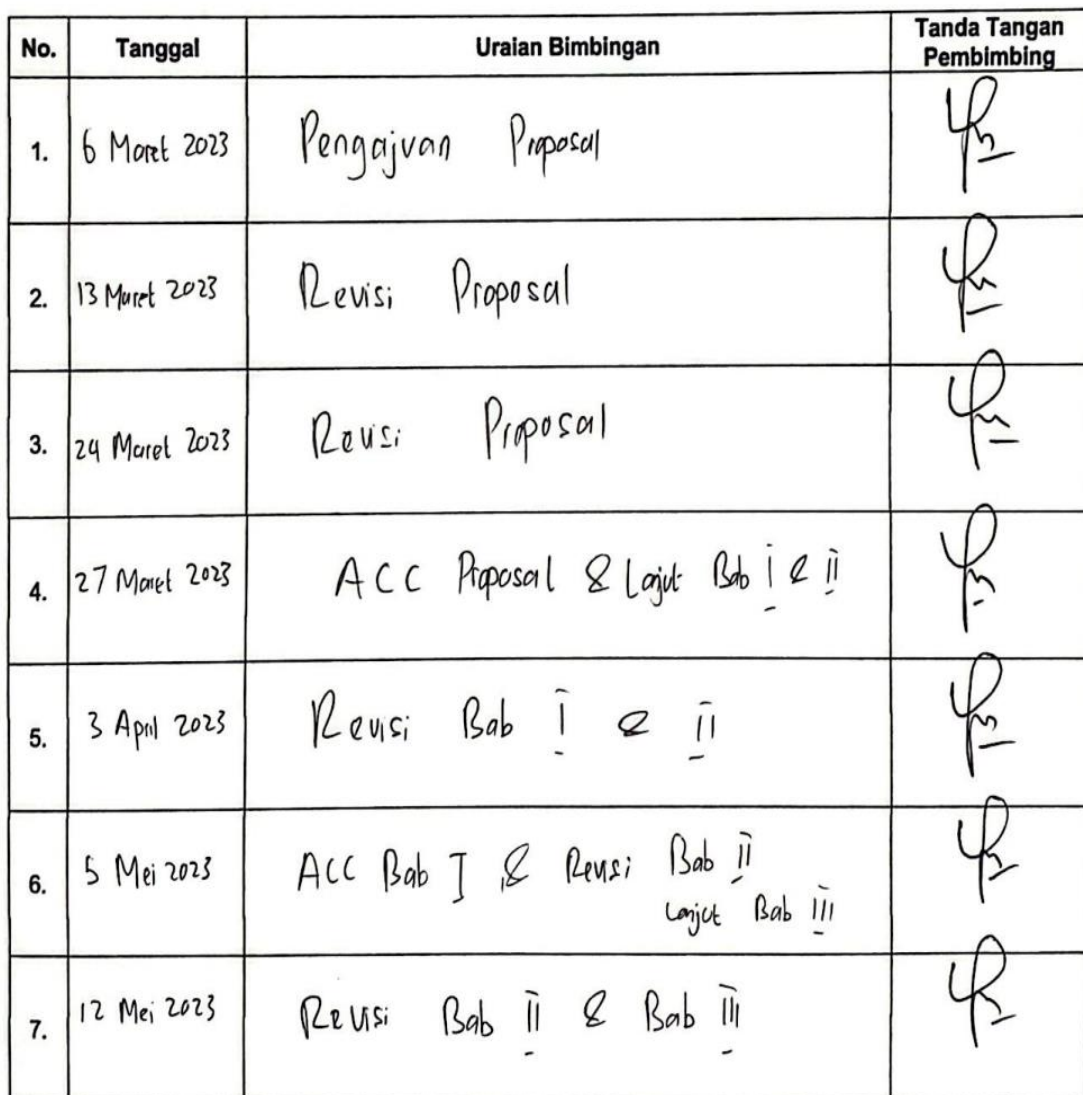 No. Tanggal Uraian Bimbingan Tanda Tangan
Pembimbing
1. 6 Maret 2023 Pengajuan Proposal
2. 13 Maret 2023 Revisi Proposal
3. 24 Maret 2023 Revisi Proposal
4. 27 Maret 2023 ACC Proposal & Lanjut Bab I & II
5. 3 April 2023 Revisi Bab I & II
6. 5 Mei 2023 ACC Bab I & Revisi Bab II
Lanjut Bab III
7. 12 Mei 2023 Revisi Bab II & Bab III